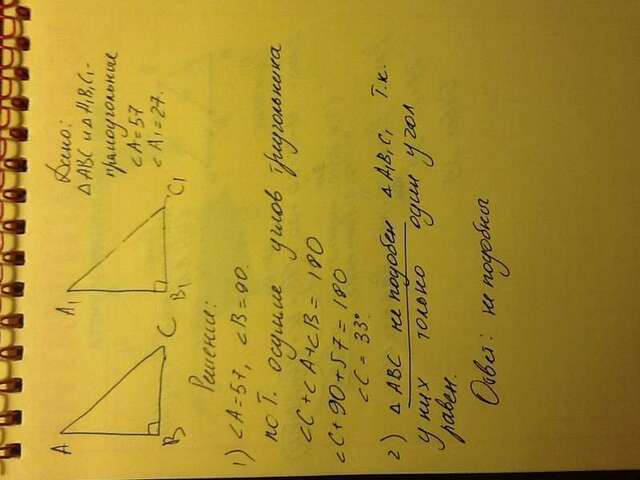 A
B
C
A₁
B₁
C₁
Дано:
△ABC и △A₁B₁C₁-
прямоугольные
<A=57
<A₁=27.
Решение:
1) <A=57, <B=90.
по Т. о сумме углов треугольника
<C+<A+<B=180
<C+90+57=180
<C=33°
2) △ABC не подобен △A₁B₁C₁ т.к.
у них только один угол
равен.
Ответ: не подобны